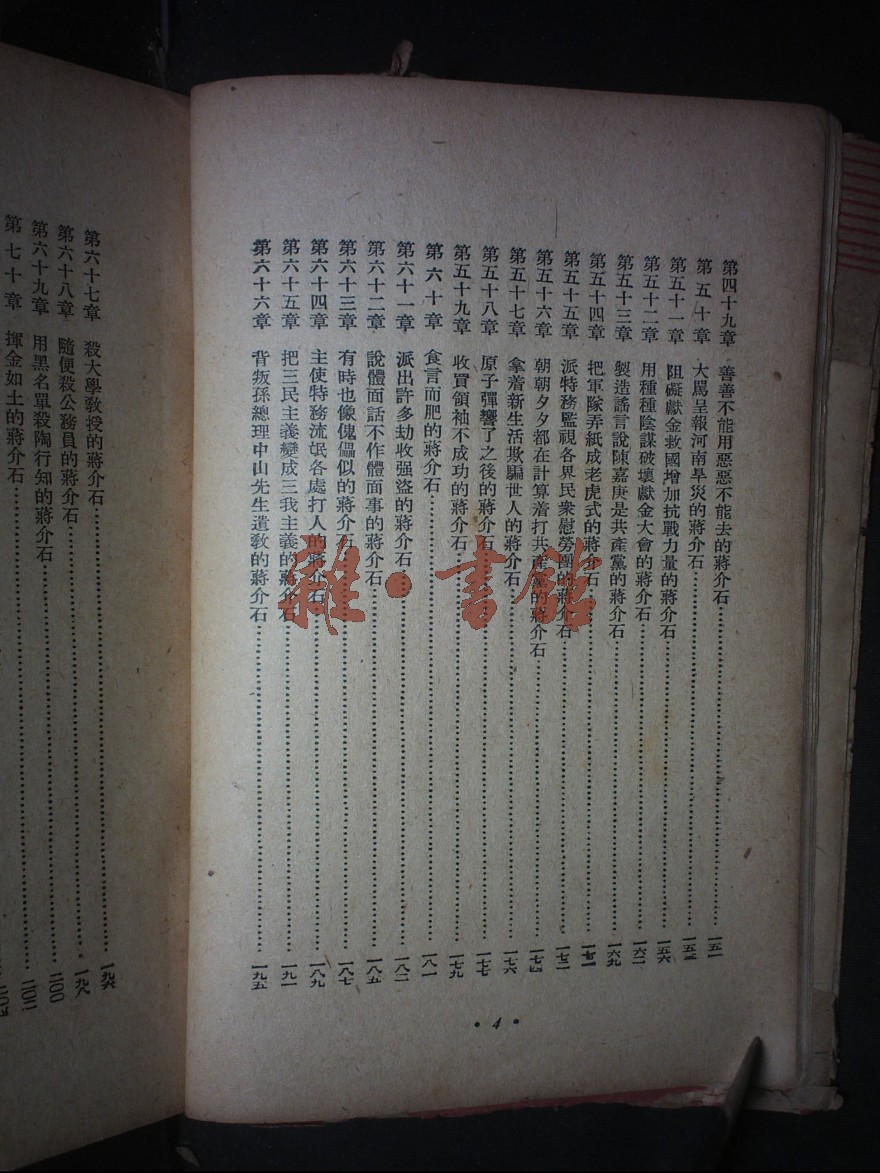 第四十九章 善善不能用惡惡不能去的蔣介石 一五一
第五十章 大罵呈報河南旱災的蔣介石 一五三
第五十一章 阻礙獻金救國增加抗戰力量的蔣介石 一五六
第五十二章 用種種陰謀破壞獻金大會的蔣介石 一六二
第五十三章 製造謠言說陳嘉庚是共產黨的蔣介石 一六九
第五十四章 把軍隊弄紙成老虎式的蔣介石
第五十五章 派特務監視各界民衆慰勞團的蔣介石
第五十六章 朝朝夕夕都在計算着打共產黨的蔣介石 一七四
第五十七章 拿着新生活欺騙世人的蔣介石 一七六
第五十八章 原子彈響了之後的蔣介石 一七七
第五十九章 收買領袖不成功的蔣介石 一七九
第六十章 食言而肥的蔣介石 一八一
第六十一章 派出許多劫收强盜的蔣介石 一八二
第六十二章 說體面話不作體面事的蔣介石 一八五
第六十三章 有時也像傀儡似的蔣介石 一八七
第六十四章 主使特務流氓各處打人的蔣介石 一八九
第六十五章 把三民主義變成三我主義的蔣介石 一九一
第六十六章 背叛孫總理中山先生遺敎的蔣介石 一九五
• 4 •
第六十七章 殺大學敎授的蔣介石 一九六
第六十八章 隨便殺公務員的蔣介石 一九八
第六十九章 用黑名單殺陶行知的蔣介石 二〇〇
第七十章 揮金如土的蔣介石
雜·書館